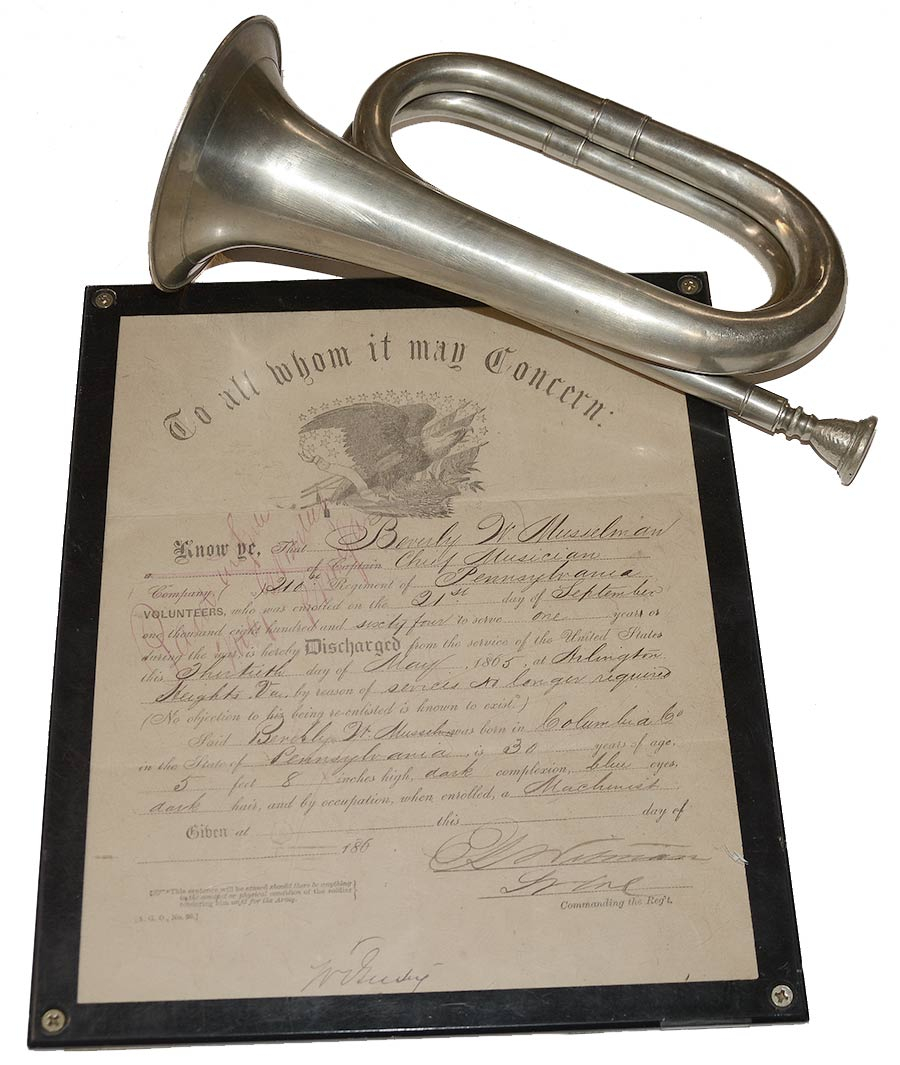 To all whom it may Concern:
Know ye, That Beverly W Musselman
a of Captain Chief Musician
Company, 210th Regiment of Pennsylvania
VOLUNTEERS, who was enrolled on the 21st day of September
one thousand eight hundred and sixty four to serve one years or
during the war, is hereby Discharged from the service of the United States
this Thirtieth day of May, 1865, at Arlington
Heights Va. by reason of services no longer required
(No objection to his being re-enlisted is known to exist.*)
Said Beverly W. Musselman was born in Columbia Co
in the State of Pennsylvania is 30 years of age,
5 feet 8 inches high, dark complexion, blue eyes,
dark hair, and by occupation, when enrolled, a Machinist
Given at this day of
186
Commanding the Reg't.
*This sentence will be erased should there be anything
in the conduct or physical condition of the soldier
rendering him unfit for the Army.
[A. G. O., No. 99.]